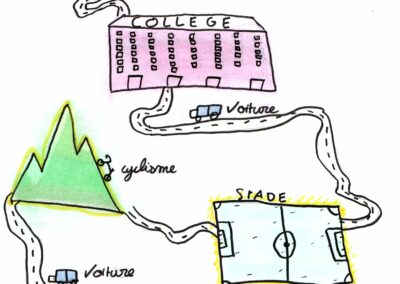 COLLEGE
Voiture
cyclisme
STADE
Voiture